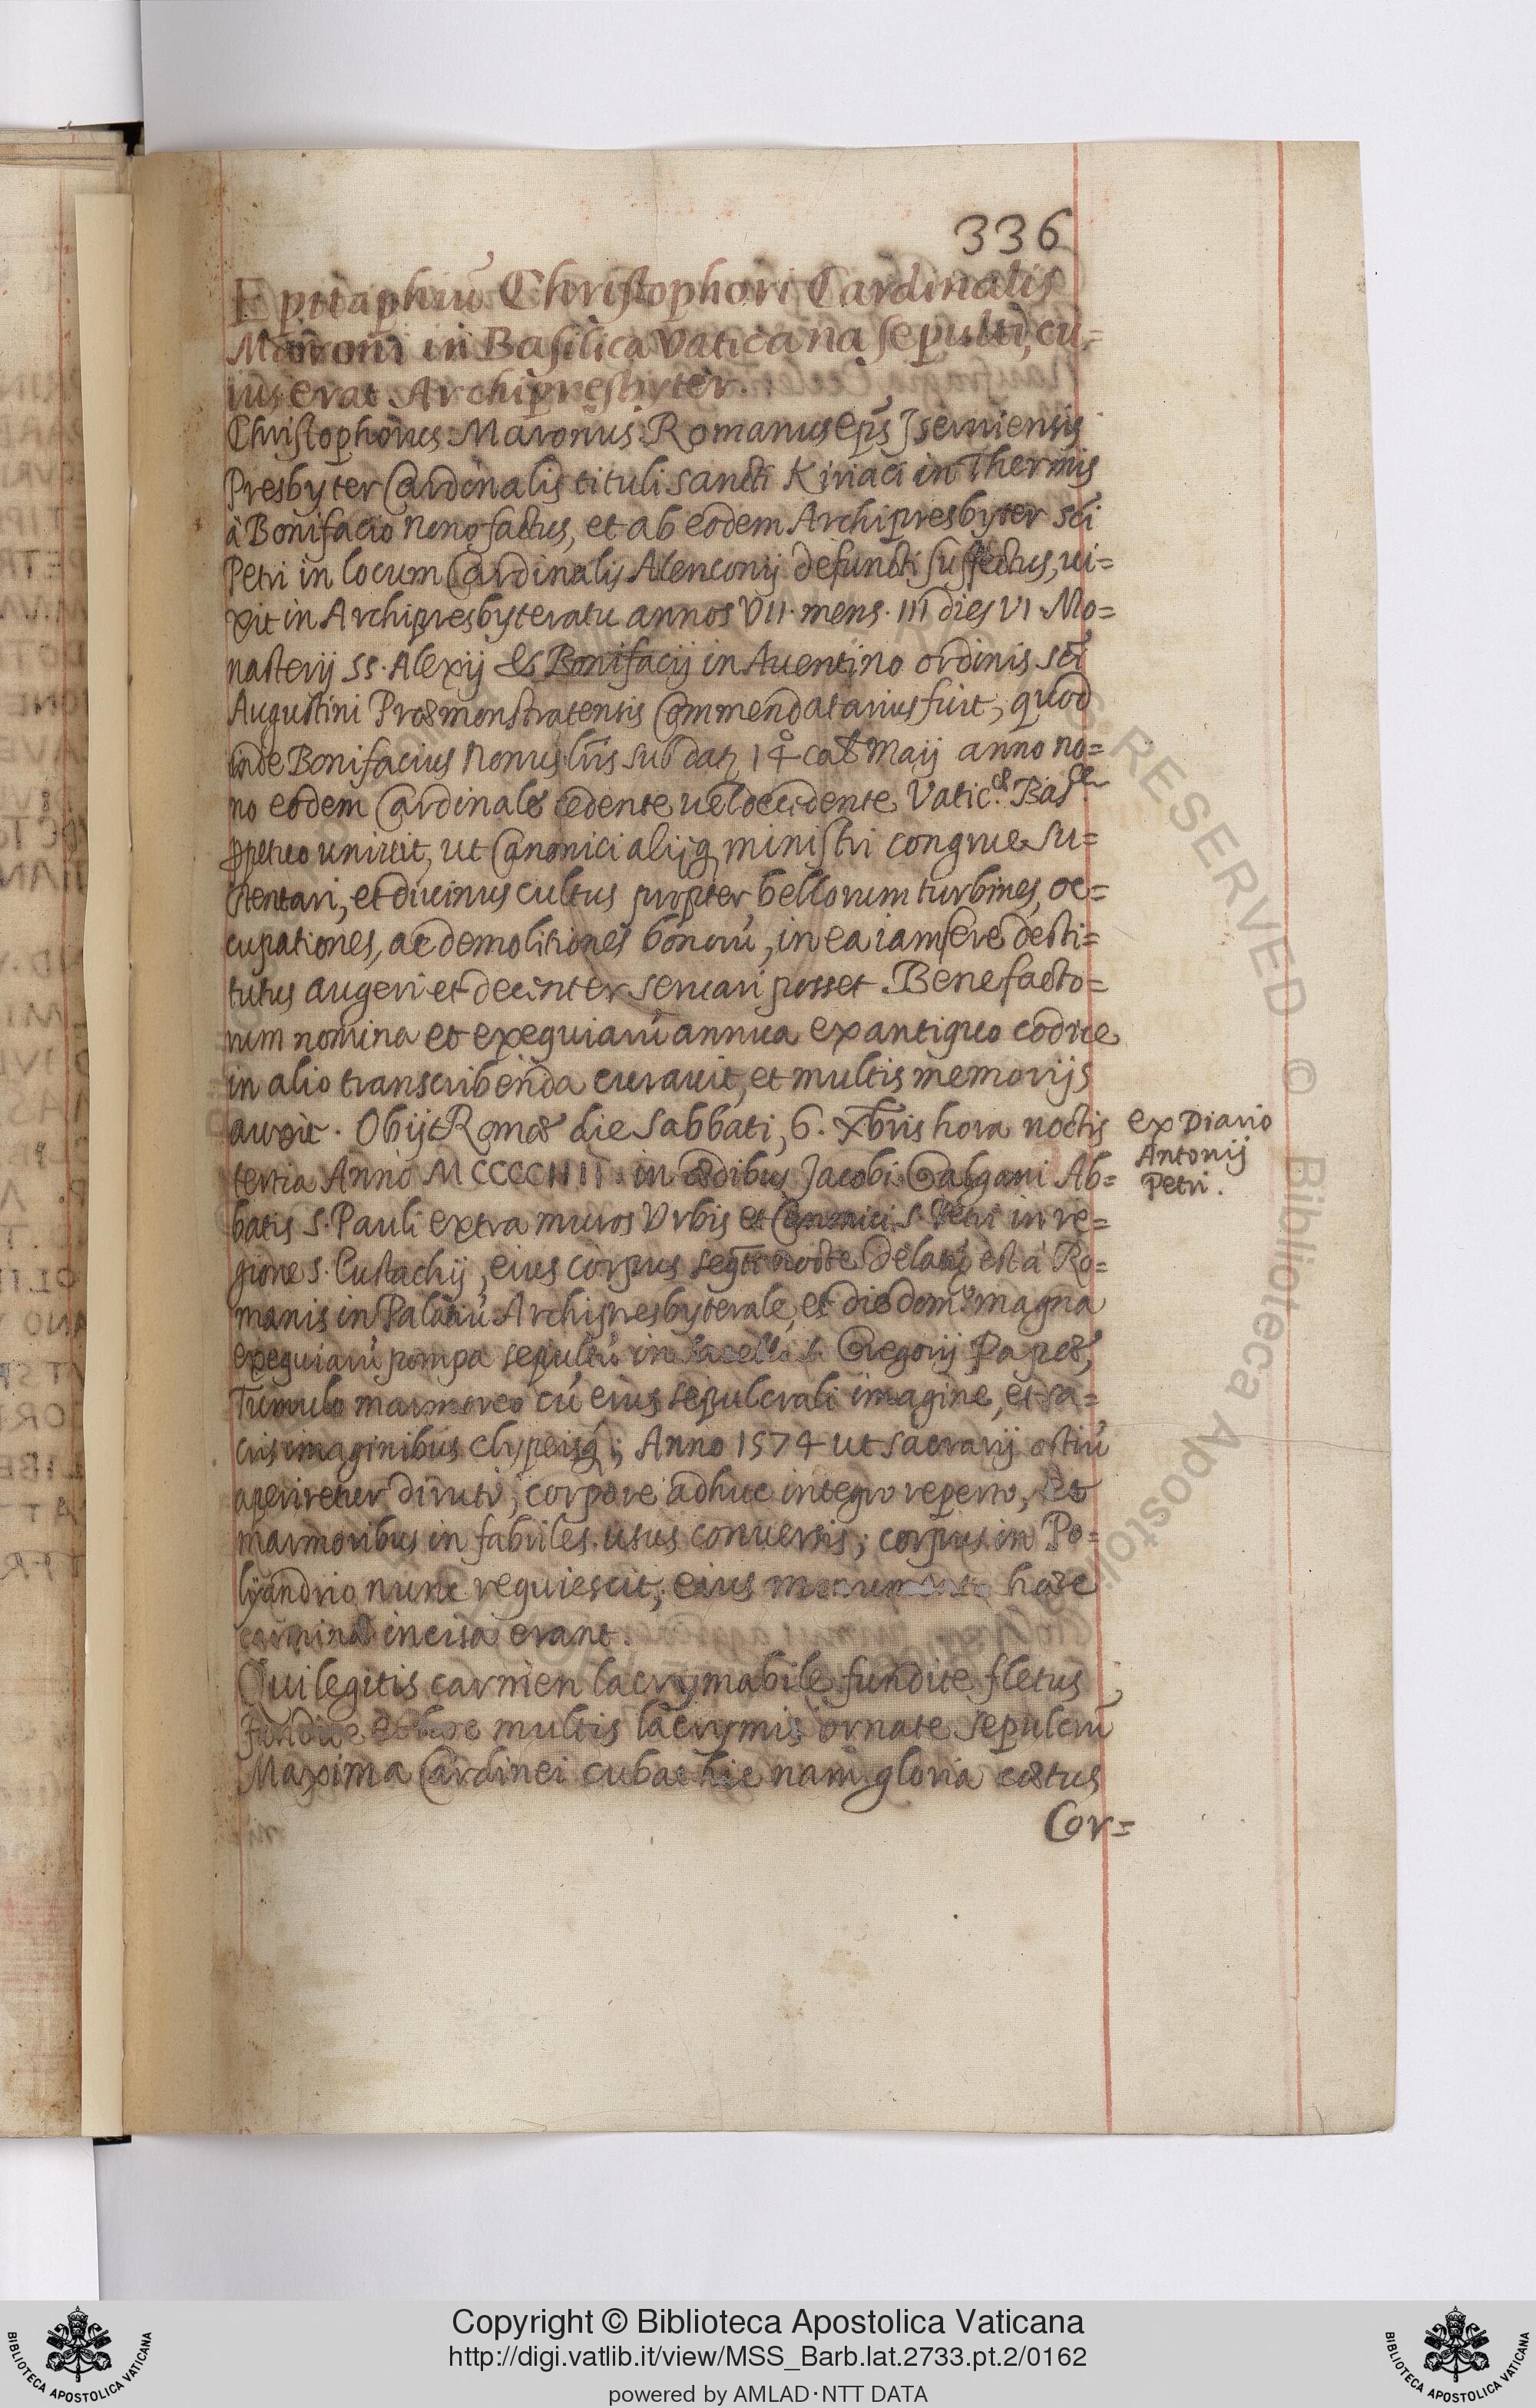 336
Epitaphiũ Christophori Cardinalis
Maroni in Basilica Vaticana sepulti, cu=
ius erat Archipresbyter.
Christophorus Maronus Romanus Ep̃s Iserniensis
Presbyter Cardinalis tituli sancti Kiriaci in Thermis
à Bonifacio Nono factus, et ab eodem Archipresbyter sc̃i
Petri in locum Cardinalis Alenconij defuncti suffectus, ui=
xit in Archipresbyteratu annos VII. mens. III dies VI. Mo=
nasterij SS. Alexij et Bonifacij in Auentino ordinis sc̃i
Augustini Præmonstratensis Commendatarius fuit, quod
inde Bonifacius Nonus lr̃is sub dat. 14º cal. Maij anno no=
no eodem Cardinale cedente uel decedente Vatic.æ Bas.cæ
ꝑpetuo uniuit, ut Canonici alijq; ministri congrue su=
stentari, et diuinus cultus propter bellorum turbines, oc=
cupationes, ac demolitiones bonorũ, in ea iam fere desti=
tutus augeri et decenter seruari posset. Benefacto=
rum nomina et exequiarũ annua ex antiquo codice
in alio transcribenda curauit, et multis memorijs
auxit. Obijt Romæ die sabbati, 6. Xbris hora noctis
tertia Anno MCCCCIIII. in ædibus Jacobi Galgani Ab=
batis S. Pauli extra muros Vrbis et Canonici S. Petri in re=
gione S. Eustachij, eius corpus seq̃ti nocte delatũ est à Ro=
manis in Palatiũ Archipresbyterale, et die dom.co magna
exequiarũ pompa sepultũ in sacello S. Gregorij Papæ,
Tumulo marmoreo cũ eius sepulcrali imagine, et sa=
cris imaginibus clypeisq;; Anno 1574 ut sacrarij ostiũ
aperiretur diruto, corpore adhuc integro reperto, et
marmoribus in fabriles usus conuersis; corpus in Po=
lyandrio nunc requiescit, eius monumento hæc
carmina incisa erant.
Qui legitis carmen lacrymabile fundite fletus
Fundite et hoc multis lacrymis ornate sepulcrũ
Maxima Cardinei cubat hic nam gloria cætus
Cor=
ex Diario
Antonij
Petri.
Copyright © Biblioteca Apostolica Vaticana
http://digi.vatlib.it/view/MSS_Barb.lat.2733.pt.2/0162
powered by AMLAD·NTT DATA
BIBLIOTECA APOSTOLICA VATICANA
BIBLIOTECA APOSTOLICA VATICANA